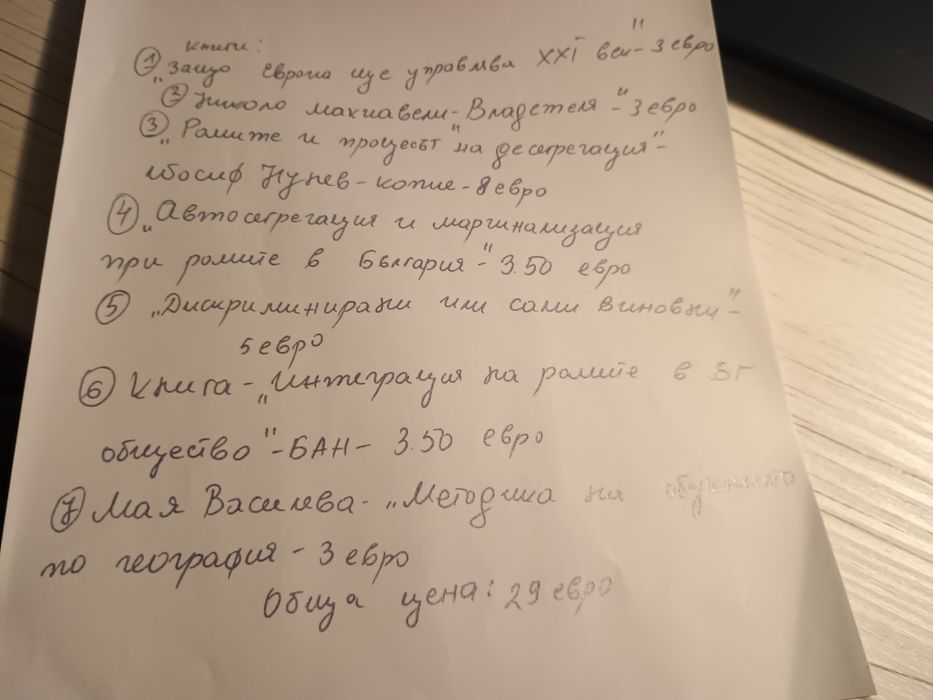 книги:
① „Защо Европа ще управлява XXI век" - 3 евро
② Николо Макиавели - „Владетеля" - 3 евро
③ „Ромите и процесът на десегрегация" -
Йосиф Нунев - копие - 8 евро
④ „Автосегрегация и маргинализация
при ромите в България" - 3.50 евро
⑤ „Дискриминирани или сами виновни" -
5 евро
⑥ Книга - „Интеграция на ромите в БГ
общество" - БАН - 3.50 евро
⑦ Мая Василева - „Методика на обучението
по география - 3 евро
Обща цена: 29 евро